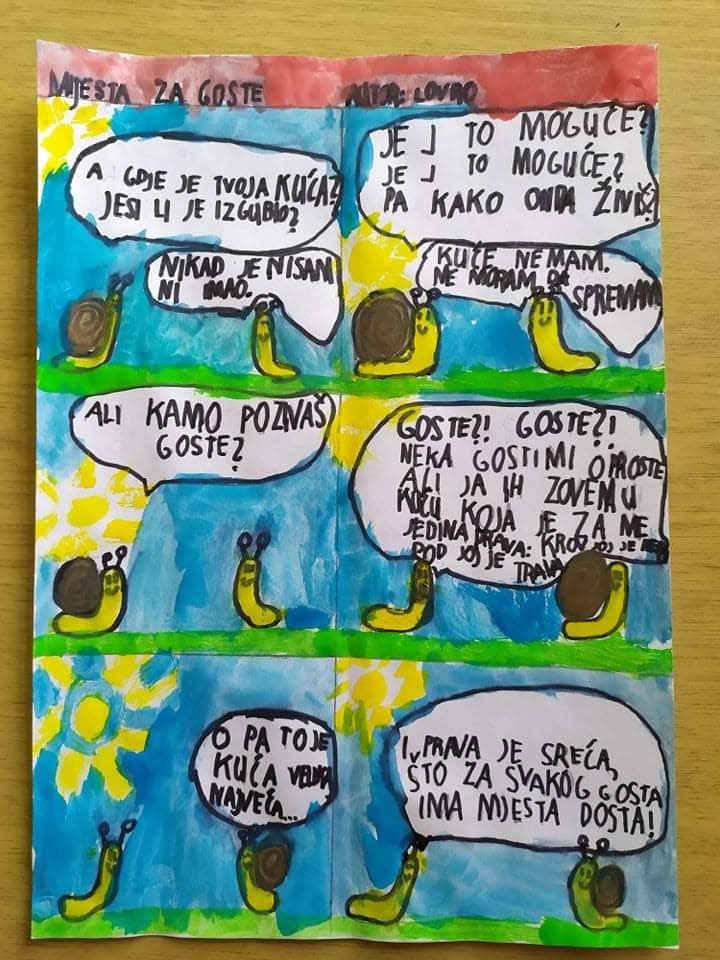 MJESTA ZA GOSTE
AUTOR: LOVRO
A GDJE JE TVOJA KUĆA?
JESI LI JE IZGUBIO?
NIKAD JE NISAM
NI IMAO.
JE LI TO MOGUĆE?
JE LI TO MOGUĆE?
PA KAKO ONDA ŽIVIŠ?
KUĆE NEMAM.
NE MORAM DA
SPREMAM
ALI KAMO POZIVAŠ
GOSTE?
GOSTE?! GOSTE?!
NEKA GOSTI MI OPROSTE
ALI JA IH ZOVEM U
KUĆU KOJA JE ZA ME
JEDINA PRAVA: KROV JOJ JE NEBO
POD JOJ JE TRAVA
O PA TO JE
KUĆA VELIKA
NAJVEĆA...
I PRAVA JE SREĆA,
ŠTO ZA SVAKOG GOSTA
IMA MJESTA DOSTA!